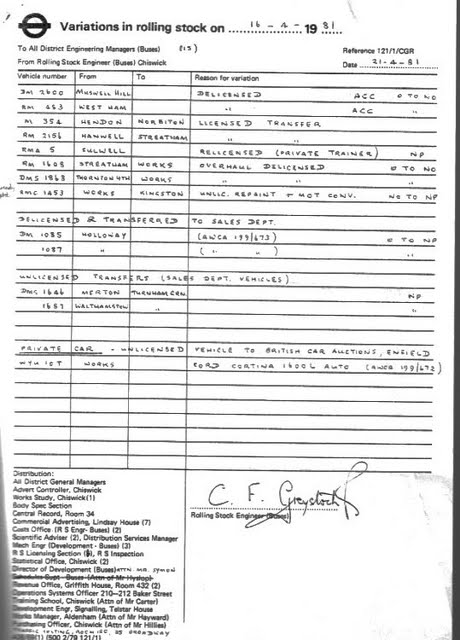 Variations in rolling stock on 16 - 4 - 1981
To All District Engineering Managers (Buses) (15)
Reference 121/1/CGR
From Rolling Stock Engineer (Buses) Chiswick
Date 21-4-81
Vehicle number From To Reason for variation
DM 2600 MUSWELL HILL DELICENSED ACC O TO NO
RM 463 WEST HAM " ACC "
M 354 HENDON NORBITON LICENSED TRANSFER
RM 2156 HANWELL STREATHAM " "
RMA 5 FULWELL RELICENSED (PRIVATE TRAINER) NP
RM 1608 STREATHAM WORKS OVERHAUL DELICENSED O TO NO
DMS 1868 THORNTON HTH WORKS " "
DMC 1453 WORKS KINGSTON UNLIC. REPAINT + MOT CONV. NO TO NP
DELICENSED & TRANSFERRED TO SALES DEPT.
DM 1035 HOLLOWAY (AWCA 199/673) O TO NP
1087 " ( " " ) "
UNLICENSED TRANSFERS (SALES DEPT. VEHICLES)
DMS 1646 MERTON TURNHAM GRN. NP
1657 WALTHAMSTOW " "
PRIVATE CAR - UNLICENSED VEHICLE TO BRITISH CAR AUCTIONS, ENFIELD
WORKS FORD CORTINA 1600L AUTO (AWCA 199/672)
Distribution:
All District General Managers
Advert Controller, Chiswick
Works Study, Chiswick(1)
Body Spec Section
Central Record, Room 34
Commercial Advertising, Lindsay House (7)
Costs Office (R S Engr- Buses) (2)
Scientific Adviser (2), Distribution Services Manager
Mech Engr (Development - Buses) (3)
R S Licensing Section (6), R S Inspection
Statistical Office, Chiswick (2)
Director of Development (Buses) ATTN MR.
Schedules Supt - Buses (Attn of Mr Hyslop)
Office, Griffith House, Room 432 (2)
Operations Systems Officer 210–212 Baker Street
Training School, Chiswick (Attn of Mr Carter)
Development Engr, Signalling, Telstar House
Works Manager, Aldenham (Attn of Mr Hayward)
Purchasing Officer, Chiswick (Attn of Mr Hillies)
55 BROADWAY
C. F. Greystock
Rolling Stock Engineer (Buses)